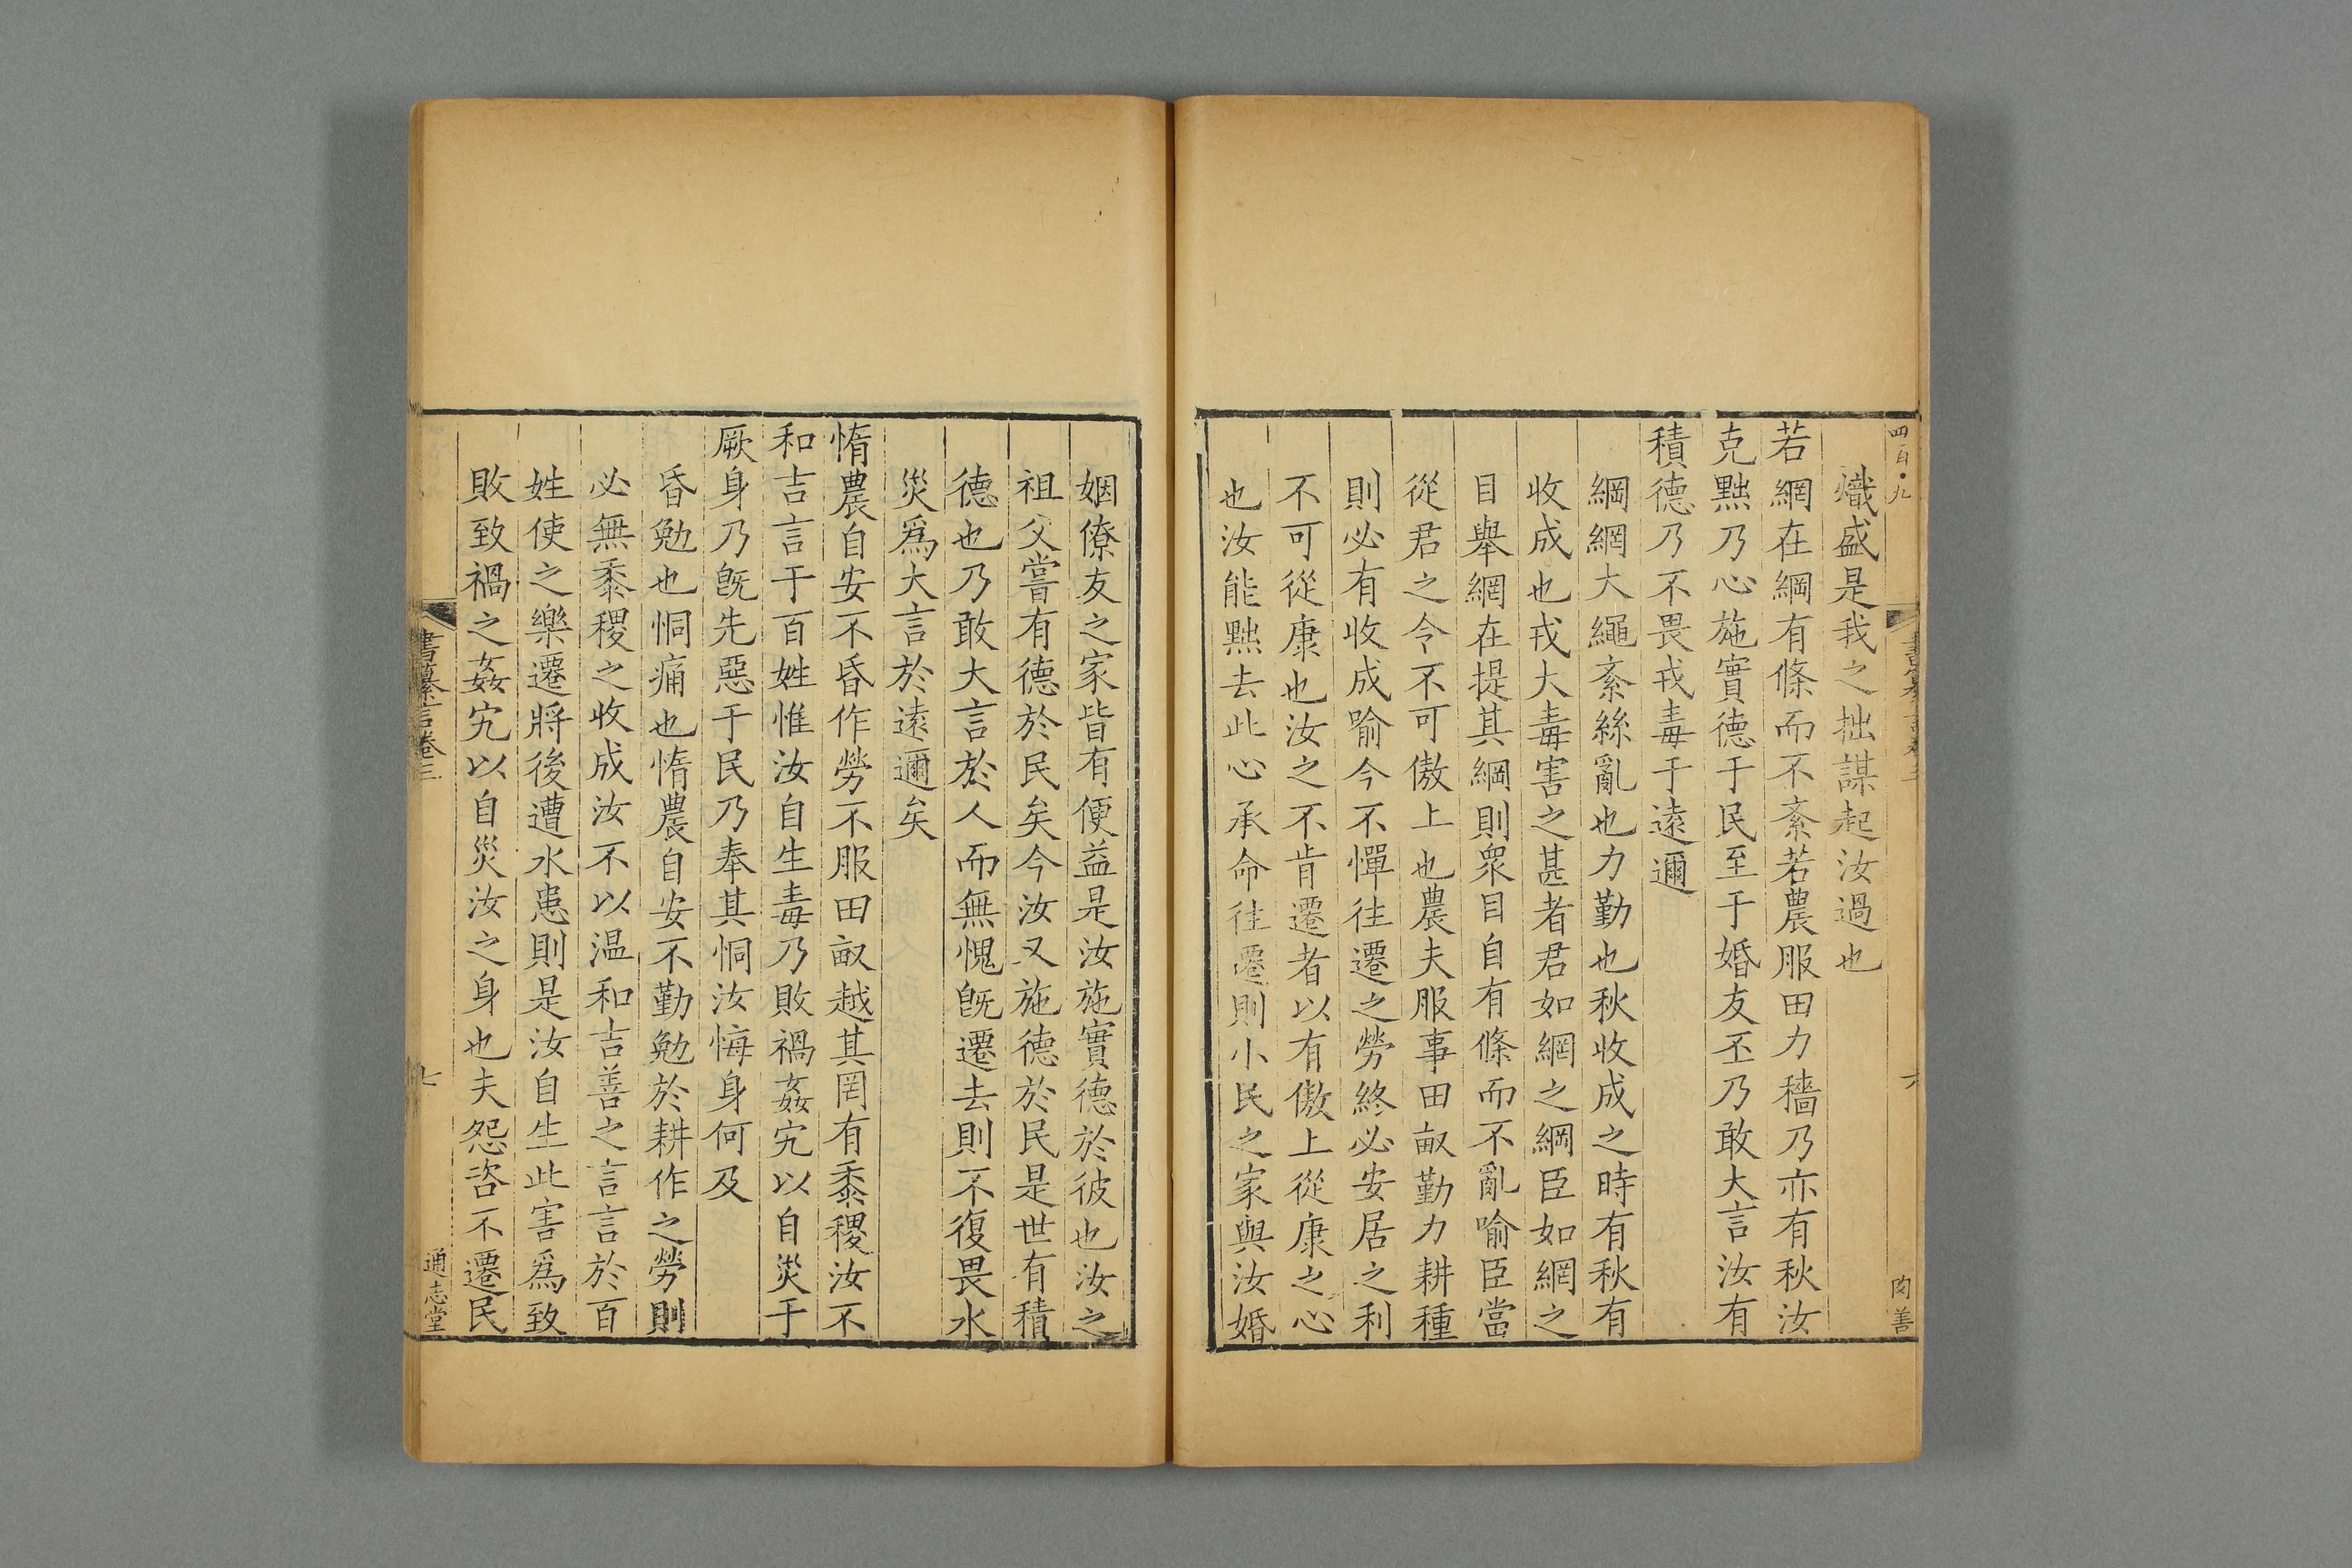 四百·九
書纂言卷三
六
熾盛是我之拙謀起汝過也
若網在綱有條而不紊若農服田力穡乃亦有秋汝
克黜乃心施實德于民至于婚友丕乃敢大言汝有
積德乃不畏戎毒于遠邇
綱網大繩紊絲亂也力勤也秋收成之時有秋有
收成也戎大毒害之甚者君如網之綱臣如網之
目舉網在提其綱則衆目自有條而不亂喻臣當
從君之令不可傲上也農夫服事田畝勤力耕種
則必有收成喻今不憚往遷之勞終必安居之利
不可從康也汝之不肯遷者以有傲上從康之心
也汝能黜去此心承命往遷則小民之家與汝婚
姻僚友之家皆有便益是汝施實德於彼也汝之
祖父嘗有德於民矣今汝又施德於民是世有積
德也乃敢大言於人而無愧旣遷去則不復畏水
災爲大言於遠邇矣
惰農自安不昏作勞不服田畝越其罔有黍稷汝不
和吉言于百姓惟汝自生毒乃敗禍姦宄以自災于
厥身乃旣先惡于民乃奉其恫汝悔身何及
昏勉也恫痛也惰農自安不勤勉於耕作之勞則
必無黍稷之收成汝不以温和吉善之言言於百
姓使之樂遷將後遭水患則是汝自生此害爲致
敗致禍之姦宄以自災汝之身也夫怨咨不遷民
書纂言卷三
七
通志堂